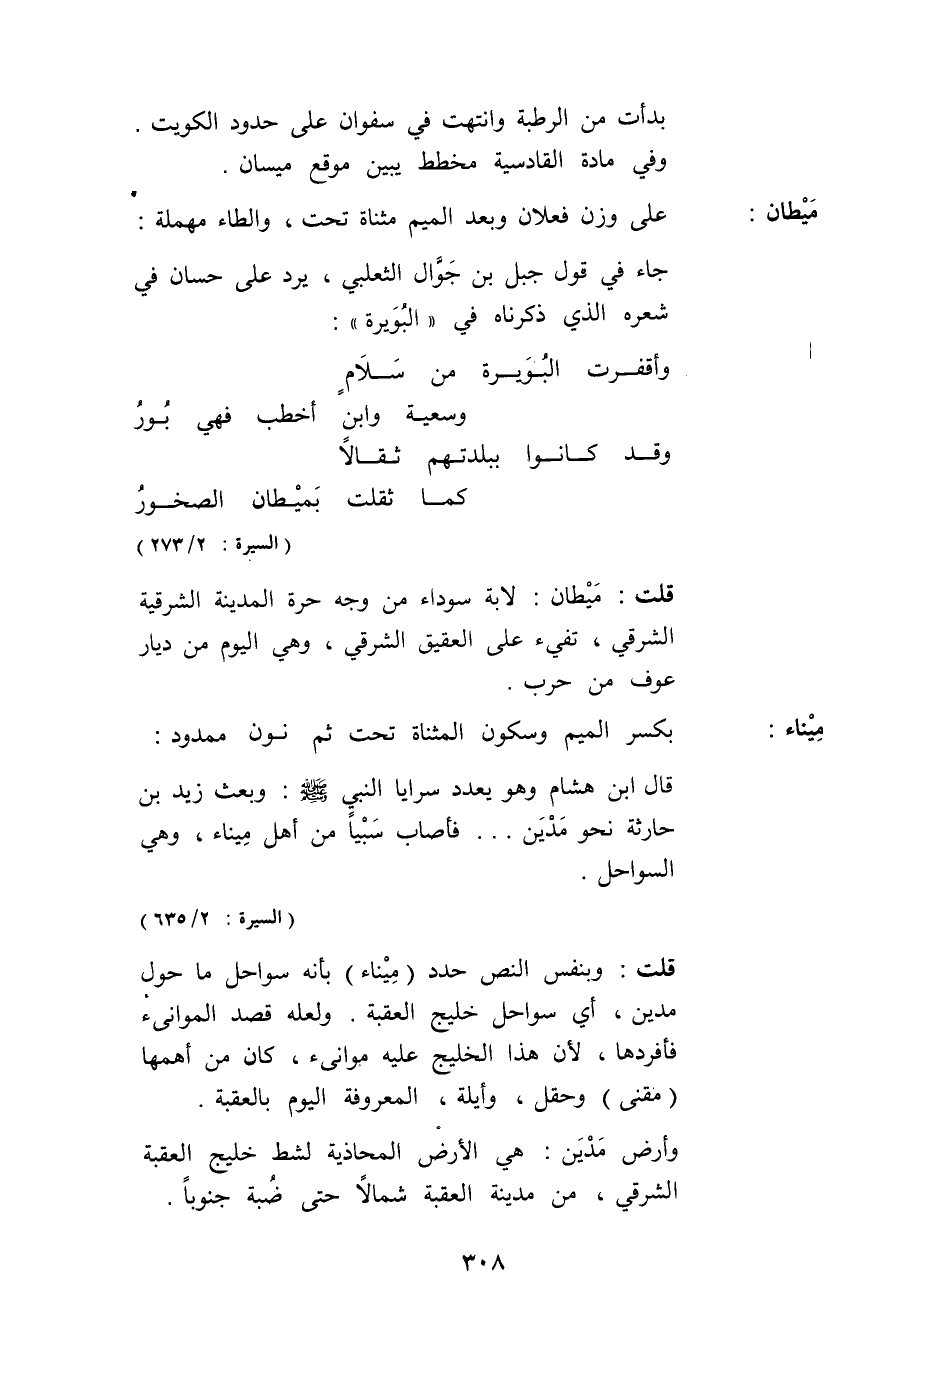 بدأت من الرطبة وانتهت في سفوان على حدود الكويت .
وفي مادة القادسية مخطط يبين موقع ميسان .
مَيْطان : على وزن فعلان وبعد الميم مثناة تحت ، والطاء مهملة :
جاء في قول جبل بن جَوَّال الثعلبي ، يرد على حسان في
شعره الذي ذكرناه في « البُوَيرة » :
وأقفــرت البُـوَيــرة من سَــلَامٍ
وسعيـة وابن أخطب فهي بُـورُ
وقــد كـانــوا ببلدتـهم ثـقــالاً
كمــا ثقلت بَميْـطان الصخــورُ
( السيرة : ٢٧٣/٢ )
قلت : مَيْطان : لابة سوداء من وجه حرة المدينة الشرقية
الشرقي ، تفيء على العقيق الشرقي ، وهي اليوم من ديار
عوف من حرب .
مِيْناء : بكسر الميم وسكون المثناة تحت ثم نـون ممدود :
قال ابن هشام وهو يعدد سرايا النبي ﷺ : وبعث زيد بن
حارثة نحو مَدْيَن ... فأصاب سَبْياً من أهل مِيناء ، وهي
السواحل .
( السيرة : ٦٣٥/٢ )
قلت : وبنفس النص حدد ( مِيْناء ) بأنه سواحل ما حول
مدين ، أي سواحل خليج العقبة . ولعله قصد الموانىء
فأفردها ، لأن هذا الخليج عليه موانىء ، كان من أهمها
( مقنى ) وحقل ، وأيلة ، المعروفة اليوم بالعقبة .
وأرض مَدْيَن : هي الأرض المحاذية لشط خليج العقبة
الشرقي ، من مدينة العقبة شمالاً حتى ضُبة جنوباً .
٣٠٨